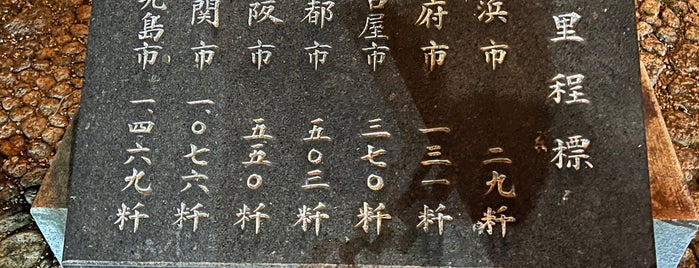 里程標
浜市 二九粁
府市 一三一粁
屋市 三七〇粁
都市 五〇三粁
阪市 五五〇粁
関市 一、〇七六粁
島市 一、四六九粁